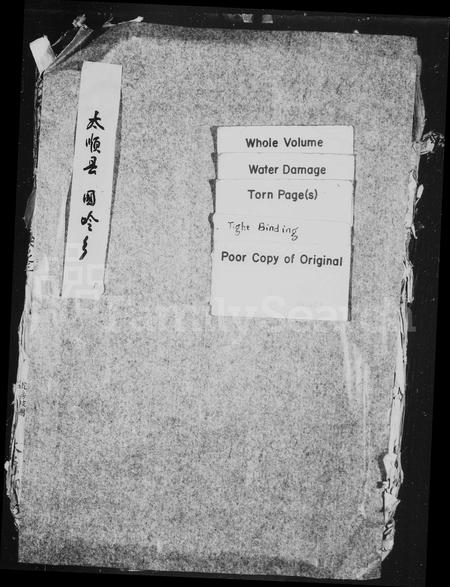 太顺县 国岭乡
Whole Volume
Water Damage
Torn Page(s)
Tight Binding
Poor Copy of Original
FamilySearch